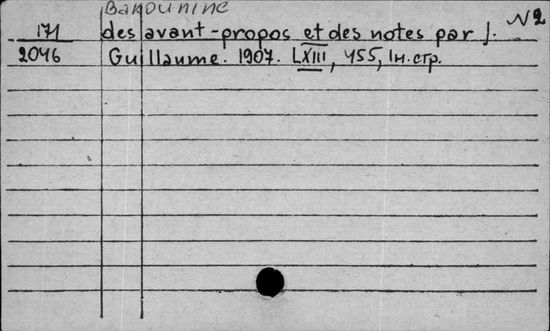 Bakounine
N2
171 des avant-propos et des notes par J.
2046 Guillaume. 1907. LXIII, 455, 1н.стр.